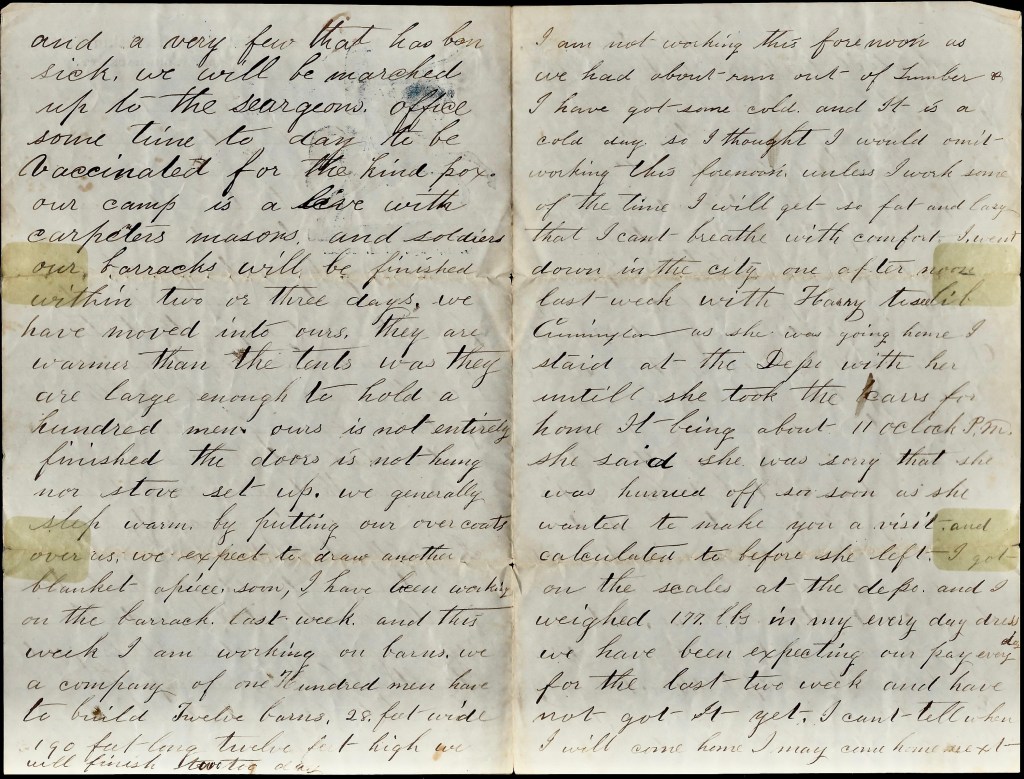 and a very few that has ben
sick. we will be marched
up to the seargeons. office
some time to day to be
Vaccinated for the kind pox.
our camp is a live with
carpeters masons. and soldiers
our barracks will be finished
within two or three days. we
have moved into ours. they are
warmer than the tents was they
are large enough to hold a
hundred men. ours is not entirely
finished the doors is not hung
nor stove set up. we generally
slep warm. by putting our overcoats
over us. we expect to draw another
blanket apiece. soon, I have been working
on the barrack. last week. and this
week I am working on barns. we
a company of one Hundred men have
to build Twelve barns. 28. feet wide
190 feet long twelve feet high we
will finish to day
I am not working this forenoon as
we had about run out of Lumber &
I have got some cold. and It is a
cold day so I thought I would omit
working this forenoon. unless I work some
of the time I will get so fat and lasy
that I cant breathe with comfort I went
down in the city one after noon
last week with Harry
as she was going home I
staid at the Depo with her
untill she took the carrs for
home It being about 11 oclock P.M.
she said she was sorry that she
was hurried off so soon as she
wanted to make you a visit. and
calculated to before she left. I got
on the scales at the depo. and I
weighed 177. lbs in my every day dress
we have been expecting our pay every day
for the last two week and have
not got It yet. I cant tell when
I will come home I may come home next